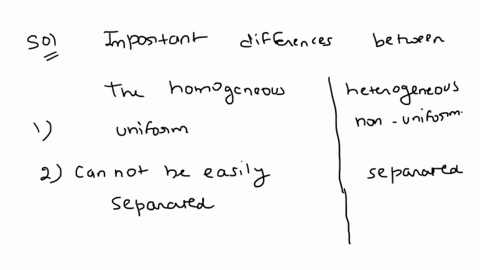 Sol Important differences between
The homogeneous heterogeneous
1) uniform non-uniform.
2) Can not be easily separated
separated